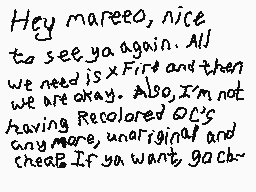 Hey mareeo, nice
to see ya again. All
we need is x Fire and then
we are okay. Also, I'm not
having Recolored OC's
any more, unoriginal and
cheap. If ya want, go ch-